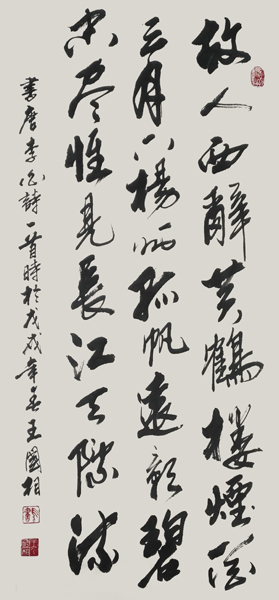 故人西辭黃鶴樓煙花
三月下揚州孤帆遠影碧
空盡惟見長江天際流
書唐李白詩一首時於戊戌年春王國相